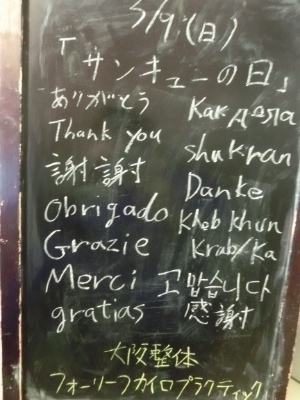 3/9(日)
「サンキューの日」
ありがとう
Thank you
謝謝
Obrigado
Grazie
Merci
gratias
Как дела
shukran
Danke
Khob khun
Krab/Ka
고맙습니다
感謝
大阪整体
フォーリーフカイロプラクティック